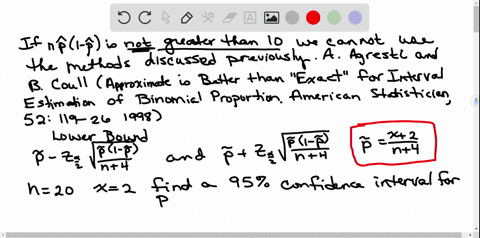 If n p̂(1-p̂) is not greater than 10 we cannot use
the methods discussed previously. A. Agresti and
B. Coull (Approximate is Better than "Exact" for Interval
Estimation of Binomial Proportion. American Statistician,
52: 119-26 1998)
Lower Bound
p̃ - Z_{α/2} √(p̃(1-p̃)/(n+4)) and p̃ + Z_{α/2} √(p̃(1-p̃)/(n+4)) p̃ = (x+2)/(n+4)
n=20 x=2 find a 95% confidence interval for
p